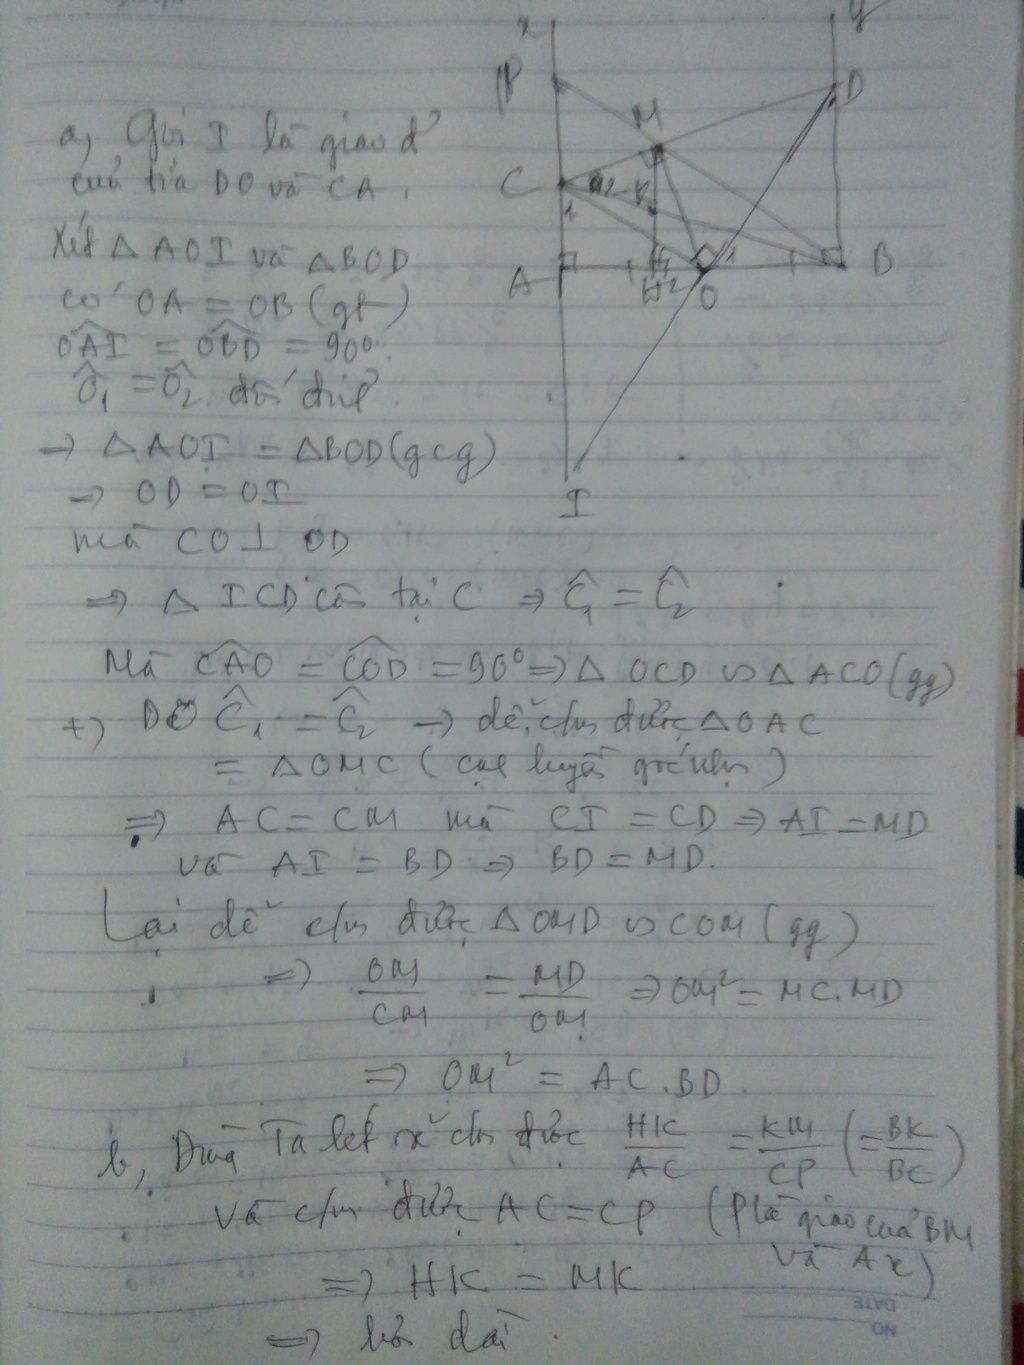 x
y
P
D
M
C
K
A
H
O
B
I
a, Gọi I là giao đ'
của tia DO và CA.
Xét △ AOI và △BOD
có OA = OB (gt)
OAI = OBD = 90°
O1 = O2 đối đỉnh
→ △AOI = △BOD(gcg)
→ OD = OI
mà CO ⊥ OD
⇒ △ ICD cân tại C ⇒ C1 = C2
Mà CAO = COD = 90° ⇒ △ OCD ∽ △ ACO (gg)
+) Do C1 = C2 → dễ c/m được △OAC
= △OMC (cạnh huyền góc nhọn)
⇒ AC = CM mà CI = CD ⇒ AI = MD
và AI = BD ⇒ BD = MD.
Lại dễ c/m được △OMD ∽ COM (gg)
⇒ OM/CM = MD/OM ⇒ OM² = MC.MD
⇒ OM² = AC.BD.
b, Dùng Ta let sẽ c/m được HK/AC = KM/CP (= BK/BC)
và c/m được AC = CP (P là giao của BM
và Ax)
⇒ HK = MK
⇒
DATE
NO